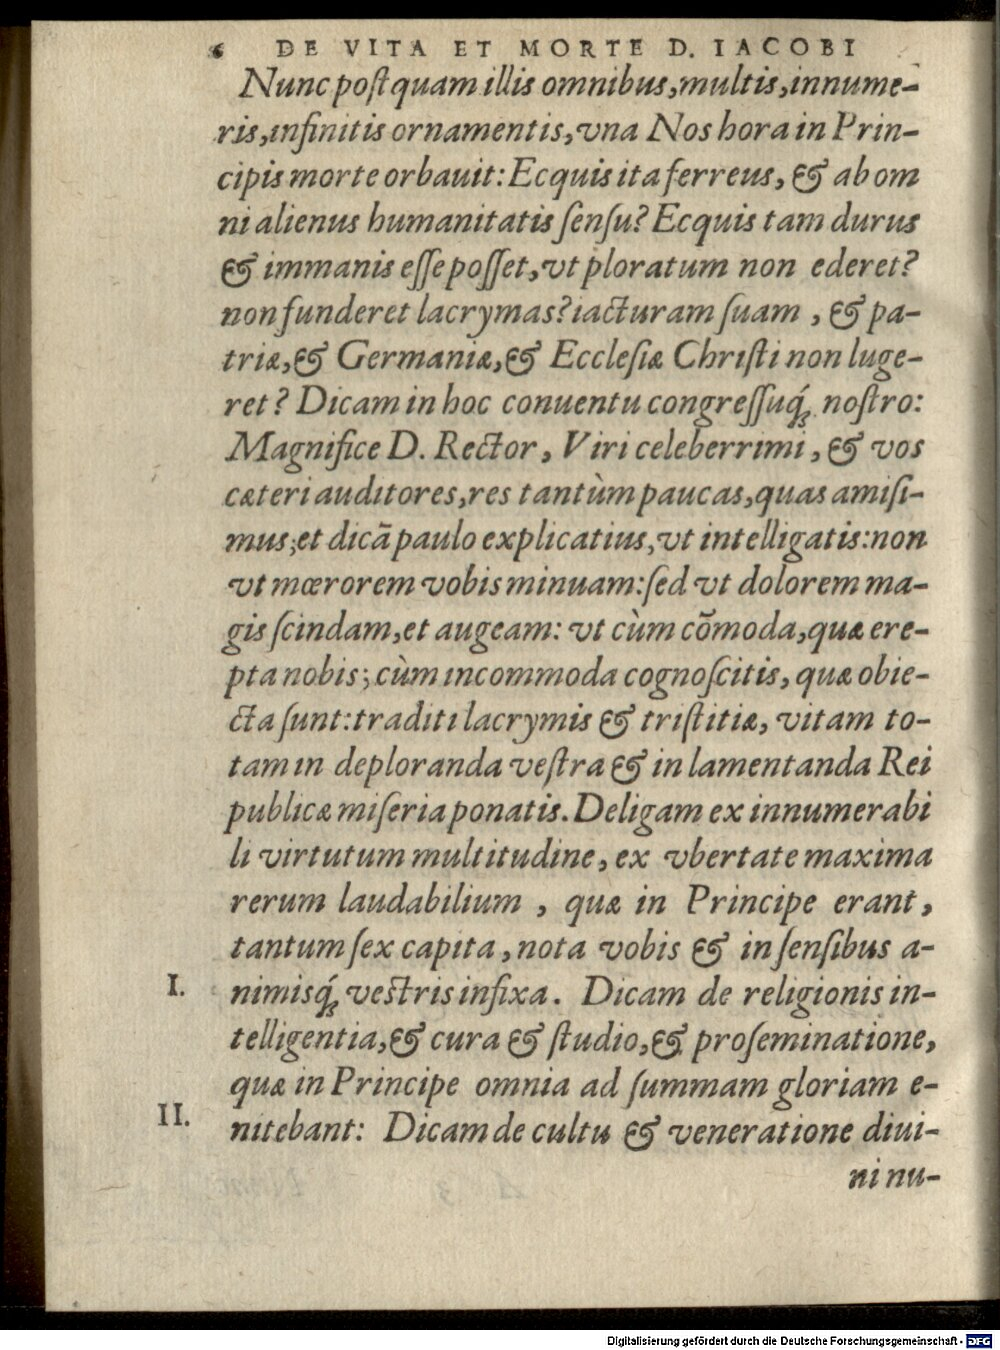 6 DE VITA ET MORTE D. IACOBI
Nunc poſtquam illis omnibus, multis, innume-
ris, infinitis ornamentis, vna Nos hora in Prin-
cipis morte orbauit: Ecquis ita ferreus, & ab om
ni alienus humanitatis ſenſu? Ecquis tam durus
& immanis eſſe poſſet, vt ploratum non ederet?
non funderet lacrymas? iacturam ſuam, & pa-
triæ, & Germaniæ, & Eccleſiæ Chriſti non luge-
ret? Dicam in hoc conuentu congreſſuq́; noſtro:
Magnifice D. Rector, Viri celeberrimi, & vos
cæteri auditores, res tantùm paucas, quas amiſi-
mus; et dicā paulo explicatius, vt intelligatis: non
vt mœrorem vobis minuam: ſed vt dolorem ma-
gis ſcindam, et augeam: vt cùm cōmoda, quæ ere-
pta nobis; cùm incommoda cognoſcitis, quæ obie-
cta ſunt: traditi lacrymis & triſtitiæ, vitam to-
tam in deploranda veſtra & in lamentanda Rei
publicæ miſeria ponatis. Deligam ex innumerabi
li virtutum multitudine, ex vbertate maxima
rerum laudabilium, quæ in Principe erant,
tantum ſex capita, nota vobis & in ſenſibus a-
I. nimisq́; veſtris infixa. Dicam de religionis in-
telligentia, & cura & ſtudio, & proſeminatione,
quæ in Principe omnia ad ſummam gloriam e-
II. nitebant: Dicam de cultu & veneratione diui-
ni nu-
Digitalisierung gefördert durch die Deutsche Forschungsgemeinschaft - DFG